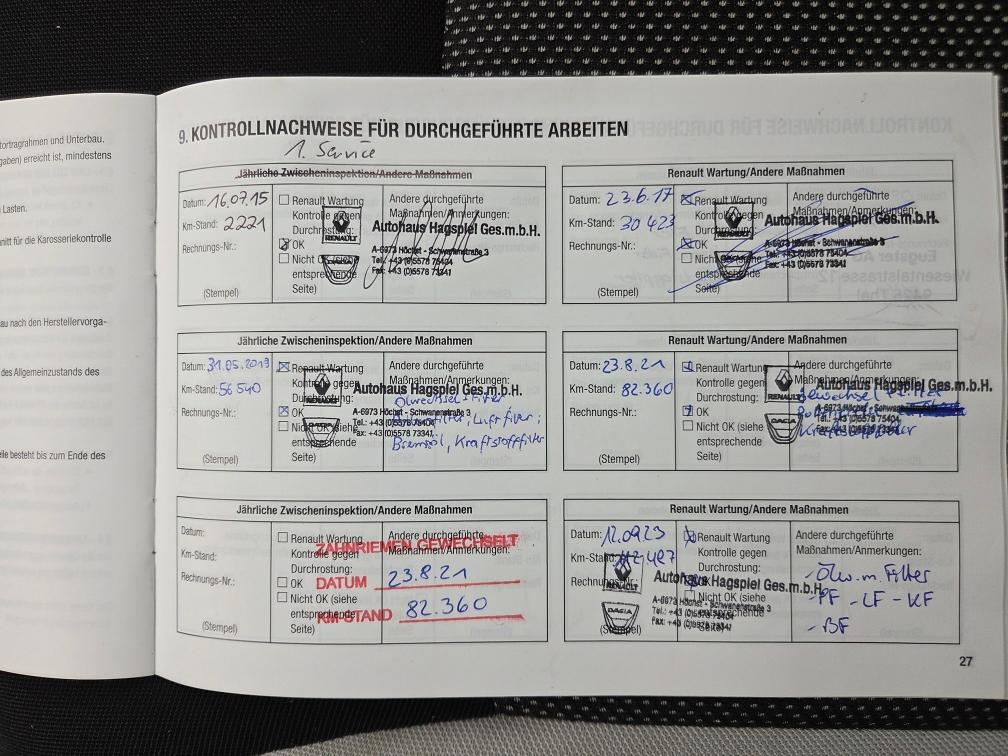 tortragrahmen und Unterbau.
gaben) erreicht ist, mindestens
Lasten.
nitt für die Karosseriekontrolle
au nach den Herstellervorga-
des Allgemeinzustands des
eile besteht bis zum Ende des
9. KONTROLLNACHWEISE FÜR DURCHGEFÜHRTE ARBEITEN
1. Service
Jährliche Zwischeninspektion/Andere Maßnahmen
Datum: 16.07.15
Km-Stand: 2221
Rechnungs-Nr.:
(Stempel)
Renault Wartung
Kontrolle gegen
Durchrostung:
OK
Nicht OK (siehe
entsprechende
Seite)
Andere durchgeführte
Maßnahmen/Anmerkungen:
RENAULT
DACIA
Autohaus Hagspiel Ges.m.b.H.
A-6973 Höchst - Schwanenstraße 3
Tel.: +43 (0)5578 75404
Fax: +43 (0)5578 73341
Renault Wartung/Andere Maßnahmen
Datum: 23.6.17
Km-Stand: 30 423
Rechnungs-Nr.:
(Stempel)
Renault Wartung
Kontrolle gegen
Durchrostung:
OK
Nicht OK (siehe
entsprechende
Seite)
Andere durchgeführte
Maßnahmen/Anmerkungen:
RENAULT
DACIA
Autohaus Hagspiel Ges.m.b.H.
A-6973 Höchst - Schwanenstraße 3
Tel.: +43 (0)5578 75404
Fax: +43 (0)5578 73341
Jährliche Zwischeninspektion/Andere Maßnahmen
Datum: 31.05.2019
Km-Stand: 56 540
Rechnungs-Nr.:
(Stempel)
Renault Wartung
Kontrolle gegen
Durchrostung:
OK
Nicht OK (siehe
entsprechende
Seite)
Andere durchgeführte
Maßnahmen/Anmerkungen:
RENAULT
DACIA
Autohaus Hagspiel Ges.m.b.H.
A-6973 Höchst - Schwanenstraße 3
Tel.: +43 (0)5578 75404
Fax: +43 (0)5578 73341
Ölwechsel + Filter
Luftfilter;
Bremsöl, Kraftstofffilter
Renault Wartung/Andere Maßnahmen
Datum: 23.8.21
Km-Stand: 82.360
Rechnungs-Nr.:
(Stempel)
Renault Wartung
Kontrolle gegen
Durchrostung:
OK
Nicht OK (siehe
entsprechende
Seite)
Andere durchgeführte
Maßnahmen/Anmerkungen:
RENAULT
DACIA
Autohaus Hagspiel Ges.m.b.H.
A-6973 Höchst - Schwanenstraße 3
Tel.: +43 (0)5578 75404
Fax: +43 (0)5578 73341
Kraftstofffilter
Jährliche Zwischeninspektion/Andere Maßnahmen
Datum:
Km-Stand:
Rechnungs-Nr.:
(Stempel)
Renault Wartung
Kontrolle gegen
Durchrostung:
OK
Nicht OK (siehe
entsprechende
Seite)
Andere durchgeführte
Maßnahmen/Anmerkungen:
ZAHNRIEMEN GEWECHSELT
DATUM 23.8.21
KM-STAND 82.360
Renault Wartung/Andere Maßnahmen
Datum: 12.09.23
Km-Stand:
Rechnungs-Nr.:
(Stempel)
Renault Wartung
Kontrolle gegen
Durchrostung:
OK
Nicht OK (siehe
entsprechende
Seite)
Andere durchgeführte
Maßnahmen/Anmerkungen:
RENAULT
DACIA
Autohaus Hagspiel Ges.m.b.H.
A-6973 Höchst - Schwanenstraße 3
Tel.: +43 (0)5578 75404
Fax: +43 (0)5578 73341
- Ölw. m. Filter
- PF - LF - KF
- BF
27